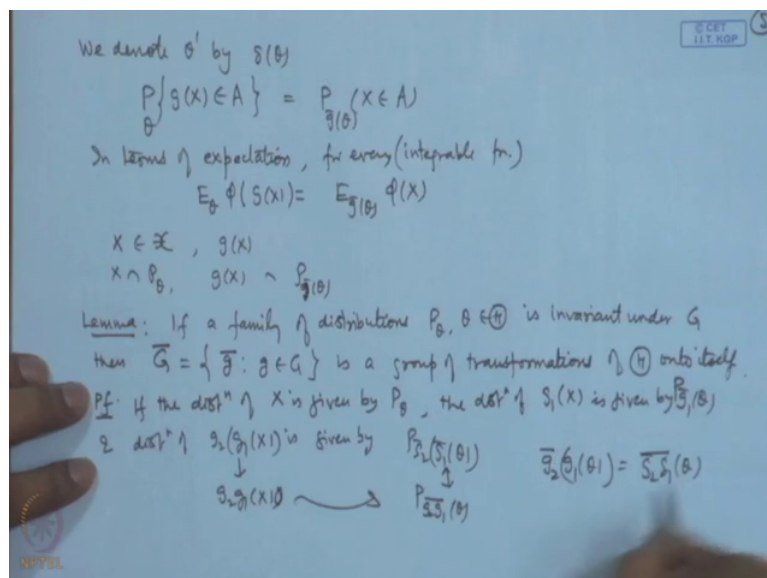 © CET
I.I.T. KGP
We denote θ' by g̅(θ)
P_θ{g(X) ∈ A} = P_g̅(θ) (X ∈ A)
In terms of expectation, for every (integrable fn.)
E_θ φ(g(X)) = E_g̅(θ) φ(X)
X ∈ 𝒳, g(X)
X ~ P_θ, g(X) ~ P_g̅(θ)
Lemma: If a family of distributions P_θ, θ ∈ Ⓗ is invariant under G
then G̅ = {g̅ : g ∈ G} is a group of transformations of Ⓗ onto itself.
Pf: If the distⁿ of X is given by P_θ, the distⁿ of g₁(X) is given by P_g̅₁(θ)
& distⁿ of g₂(g₁(X)) is given by P_g̅₂(g̅₁(θ)) g̅₂(g̅₁(θ)) = \overline{g₂g₁}(θ)
↓ ↕
g₂g₁(X) → P_\overline{g₂g₁}(θ)
NPTEL